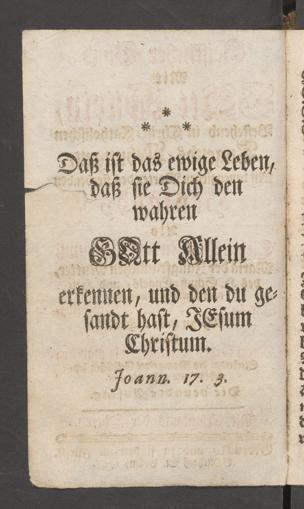 * * *
Daß ist das ewige Leben,
daß sie Dich den
wahren
GOtt Allein
erkennen, und den du ge-
sandt hast, JEsum
Christum.
Joann. 17. 3.